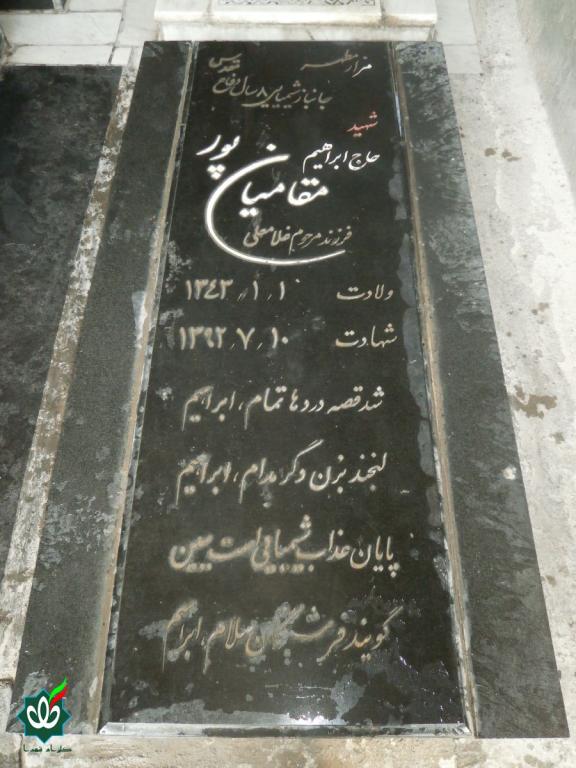 مزار مطهر
جانباز شیمیایی ۸ سال دفاع مقدس
شهید
حاج ابراهیم
مقامیان پور
فرزند مرحوم غلامعلی
ولادت ۱ ٫ ۱ ٫ ۱۳۴۳
شهادت ۱۰ ٫ ۷ ٫ ۱۳۹۲
شد قصه دردها تمام ، ابراهیم
لبخند بزن دگر مدام ، ابراهیم
پایان عذاب شیمیایی است ببین
گویند فرشتگان سلام ، ابراهیم